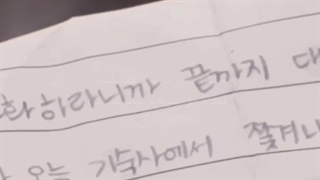 화하라니까 끝까지 대
오늘 기숙사에서 쫓겨나